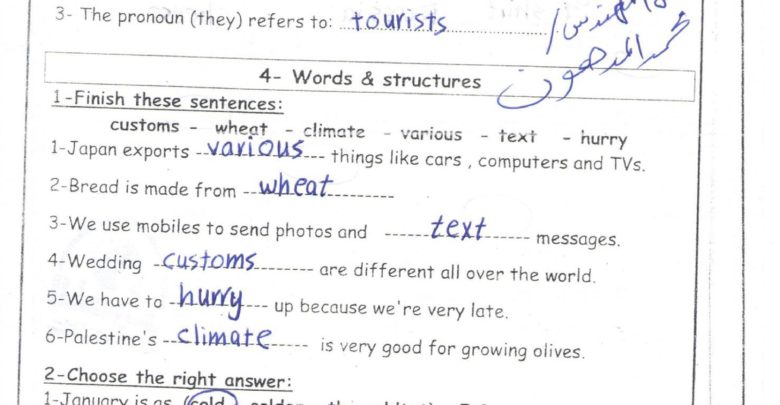 3- The pronoun (they) refers to: tourists
4- Words & structures
1-Finish these sentences:
customs - wheat - climate - various - text - hurry
1-Japan exports various things like cars , computers and TVs.
2-Bread is made from wheat
3-We use mobiles to send photos and text messages.
4-Wedding customs are different all over the world.
5-We have to hurry up because we're very late.
6-Palestine's climate is very good for growing olives.
2-Choose the right answer:
1-January is as (cold